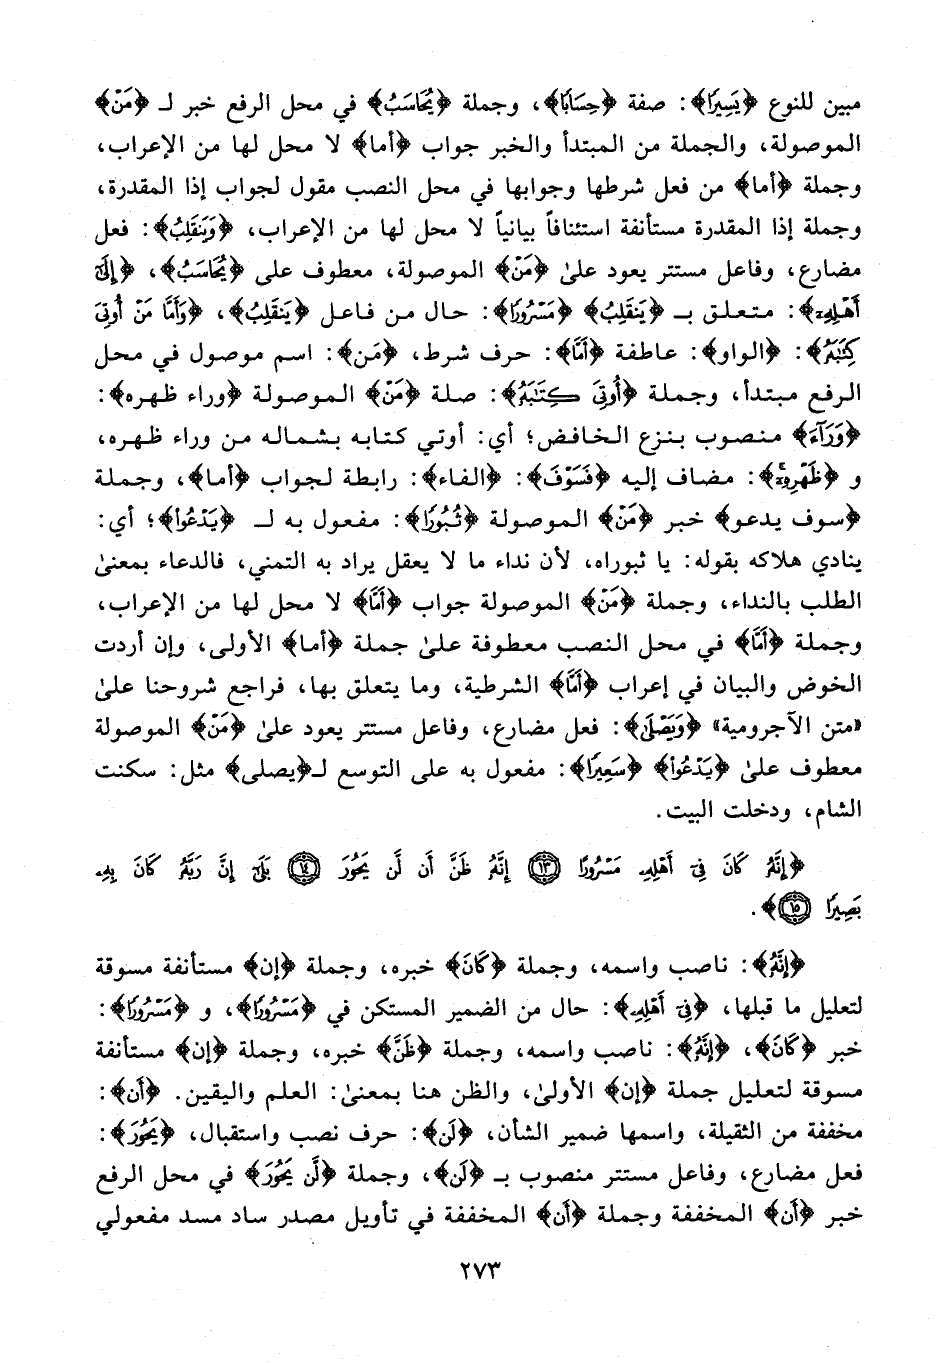 مبين للنوع ﴿يَسِيرًا﴾: صفة ﴿حِسَابًا﴾، وجملة ﴿يُحَاسَبُ﴾ في محل الرفع خبر لـ ﴿مَنْ﴾
الموصولة، والجملة من المبتدأ والخبر جواب ﴿أما﴾ لا محل لها من الإعراب،
وجملة ﴿أما﴾ من فعل شرطها وجوابها في محل النصب مقول لجواب إذا المقدرة،
وجملة إذا المقدرة مستأنفة استئنافاً بيانياً لا محل لها من الإعراب، ﴿وَيَنقَلِبُ﴾: فعل
مضارع، وفاعل مستتر يعود علىٰ ﴿مَنْ﴾ الموصولة، معطوف على ﴿يُحَاسَبُ﴾، ﴿إِلَىٰٓ
أَهْلِهِۦ﴾: متعلق بـ ﴿يَنقَلِبُ﴾ ﴿مَسْرُورًا﴾: حال من فاعل ﴿يَنقَلِبُ﴾، ﴿وَأَمَّا مَنْ أُوتِىَ
كِتَٰبَهُۥ﴾: ﴿الواو﴾: عاطفة ﴿أَمَّا﴾: حرف شرط، ﴿مَن﴾: اسم موصول في محل
الرفع مبتدأ، وجملة ﴿أُوتِىَ كِتَٰبَهُۥ﴾: صلة ﴿مَنْ﴾ الموصولة ﴿وراء ظهره﴾:
﴿وَرَآءَ﴾ منصوب بنزع الخافض؛ أي: أوتي كتابه بشماله من وراء ظهره،
و ﴿ظَهْرِهِۦ﴾: مضاف إليه ﴿فَسَوْفَ﴾: ﴿الفاء﴾: رابطة لجواب ﴿أما﴾، وجملة
﴿سوف يدعو﴾ خبر ﴿مَنْ﴾ الموصولة ﴿ثُبُورًا﴾: مفعول به لـ ﴿يَدْعُواْ﴾؛ أي:
ينادي هلاكه بقوله: يا ثبوراه، لأن نداء ما لا يعقل يراد به التمني، فالدعاء بمعنىٰ
الطلب بالنداء، وجملة ﴿مَنْ﴾ الموصولة جواب ﴿أَمَّا﴾ لا محل لها من الإعراب،
وجملة ﴿أَمَّا﴾ في محل النصب معطوفة علىٰ جملة ﴿أما﴾ الأولى، وإن أردت
الخوض والبيان في إعراب ﴿أَمَّا﴾ الشرطية، وما يتعلق بها، فراجع شروحنا علىٰ
«متن الآجرومية» ﴿وَيَصْلَىٰ﴾: فعل مضارع، وفاعل مستتر يعود علىٰ ﴿مَنْ﴾ الموصولة
معطوف علىٰ ﴿يَدْعُواْ﴾ ﴿سَعِيرًا﴾: مفعول به على التوسع لـ﴿يصلى﴾ مثل: سكنت
الشام، ودخلت البيت.
﴿إِنَّهُۥ كَانَ فِىٓ أَهْلِهِۦ مَسْرُورًا ١٣ إِنَّهُۥ ظَنَّ أَن لَّن يَحُورَ ١٤ بَلَىٰٓ إِنَّ رَبَّهُۥ كَانَ بِهِۦ
بَصِيرًا ١٥﴾.
﴿إِنَّهُۥ﴾: ناصب واسمه، وجملة ﴿كَانَ﴾ خبره، وجملة ﴿إن﴾ مستأنفة مسوقة
لتعليل ما قبلها، ﴿فِىٓ أَهْلِهِۦ﴾: حال من الضمير المستكن في ﴿مَسْرُورًا﴾، و ﴿مَسْرُورًا﴾:
خبر ﴿كَانَ﴾، ﴿إِنَّهُۥ﴾: ناصب واسمه، وجملة ﴿ظَنَّ﴾ خبره، وجملة ﴿إن﴾ مستأنفة
مسوقة لتعليل جملة ﴿إن﴾ الأولىٰ، والظن هنا بمعنىٰ: العلم واليقين. ﴿أَن﴾:
مخففة من الثقيلة، واسمها ضمير الشأن، ﴿لَن﴾: حرف نصب واستقبال، ﴿يَحُورَ﴾:
فعل مضارع، وفاعل مستتر منصوب بـ ﴿لَن﴾، وجملة ﴿لَّن يَحُورَ﴾ في محل الرفع
خبر ﴿أَن﴾ المخففة وجملة ﴿أن﴾ المخففة في تأويل مصدر ساد مسد مفعولي
٢٧٣